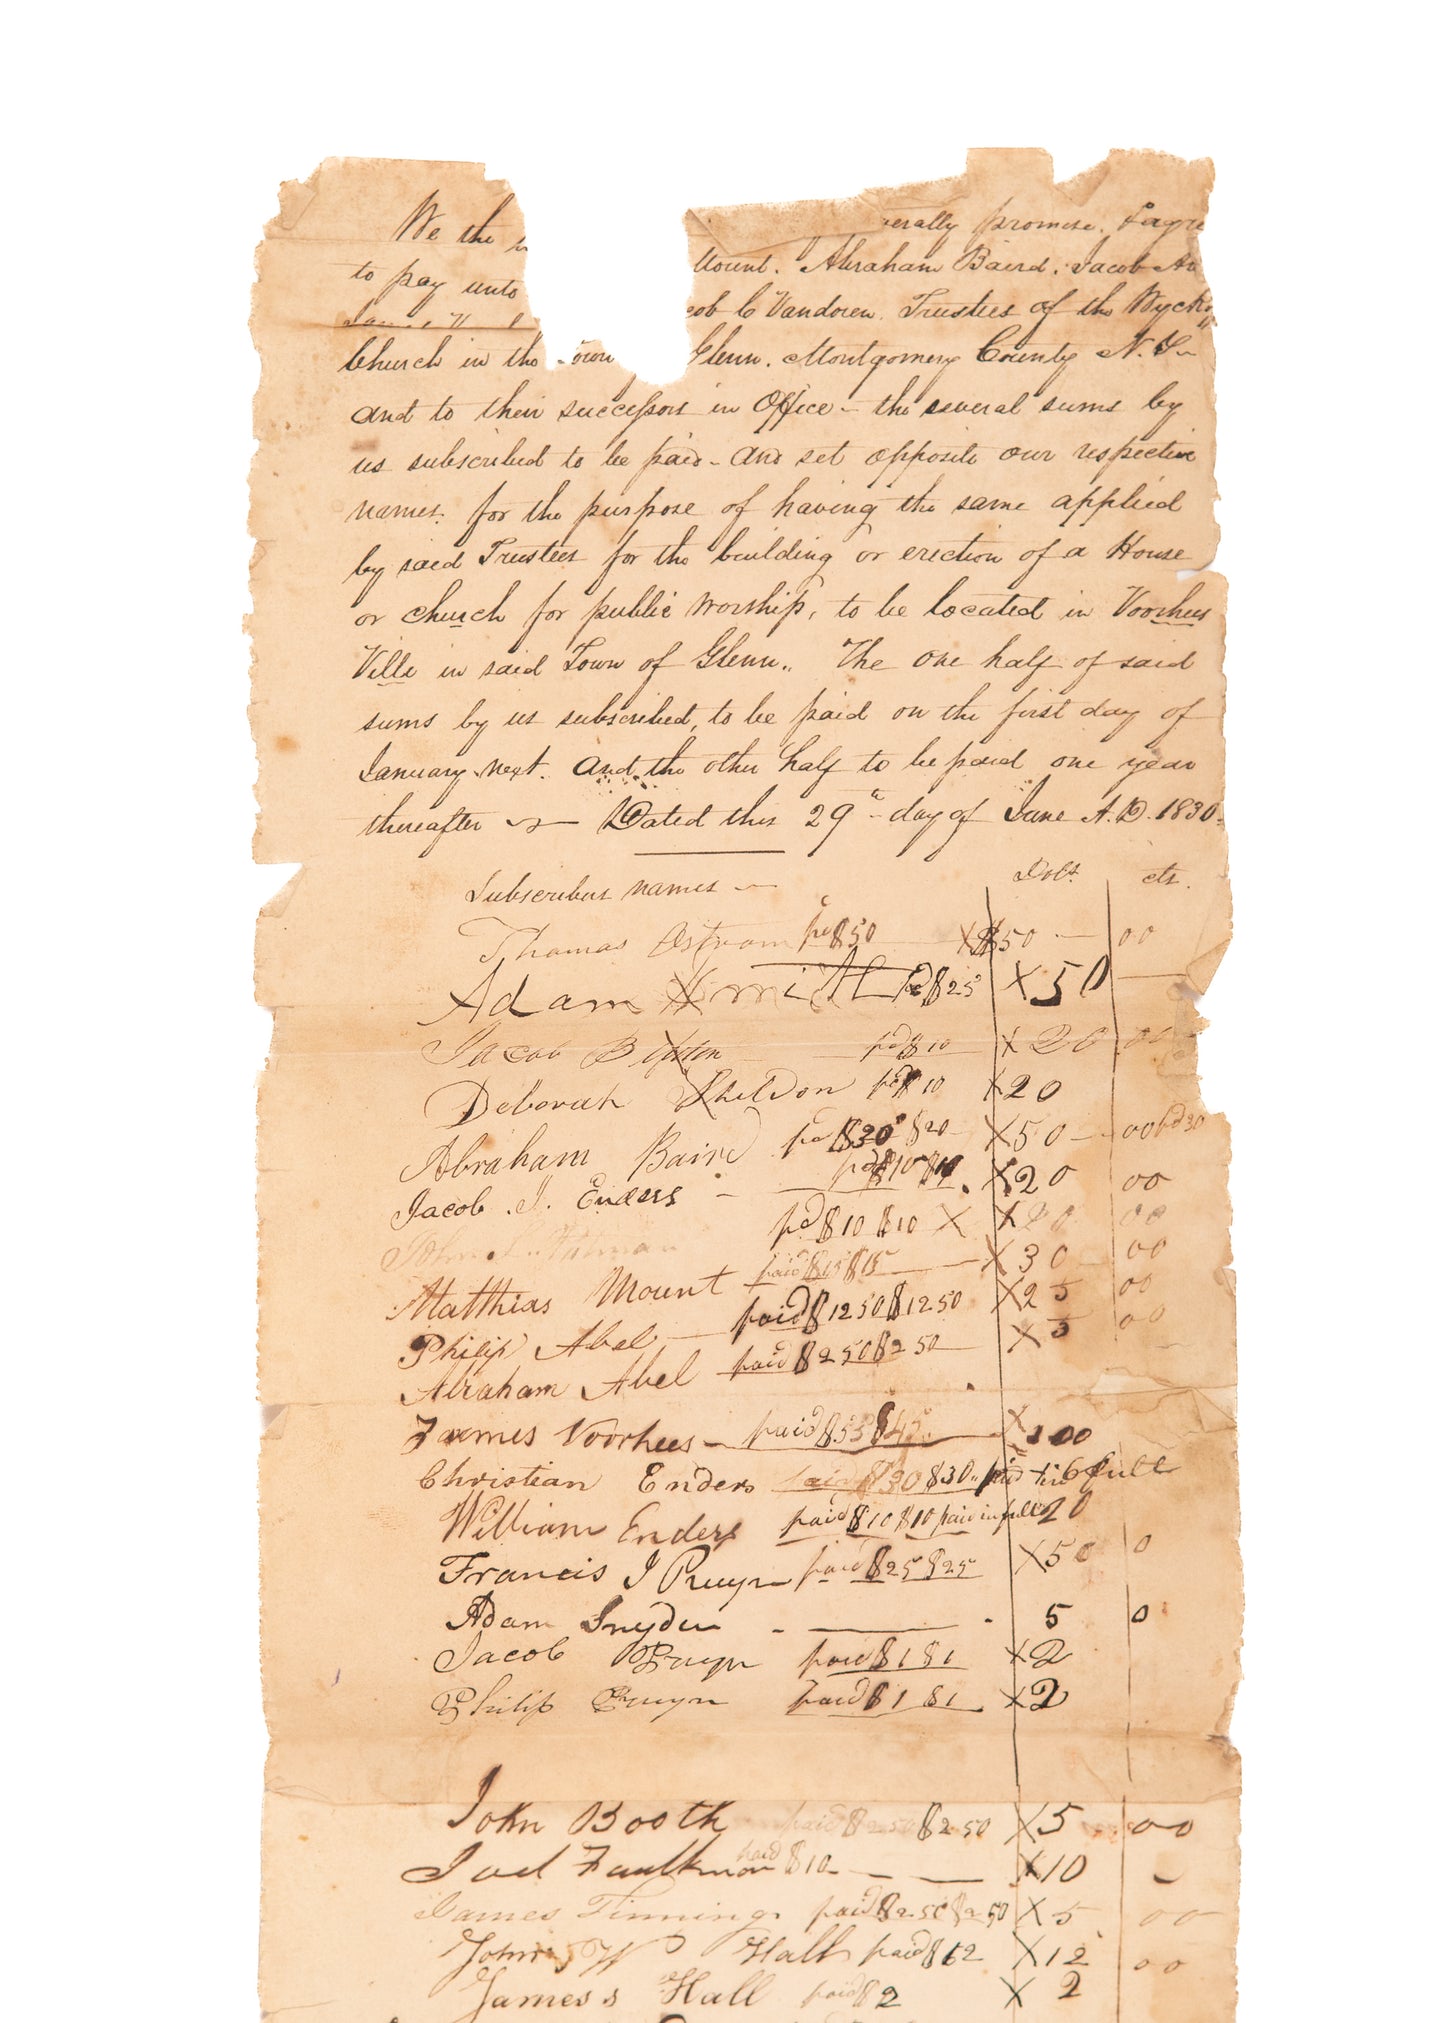 We the verally promise. & agree
to pay unto Mount. Abraham Baird. Jacob
cob C Vandoren. Trustees of the Wyck
Church in the own Glenn. Montgomery County N.Y-
and to their successors in Office - the several sums by
us subscribed to be paid - and set opposite our respective
names. for the purpose of having the same applied
by said Trustees for the building or erection of a House
or church for public worship, to be located in Voorhees
Ville in said Town of Glenn.. The one half of said
sums by us subscribed, to be paid on the first day of
January next. And the other half to be paid one year
thereafter - Dated this 29th day of June A.D. 1830.
Subscribers names Dols. cts.
Thomas Ostrom pd $50 X $50 - 00
Adam Smith pd $25 X 50
Jacob pd $10 X 20 00
Deborah Sheldon pd $10 X 20
Abraham Baird pd $30 $20 X 50 - 00 pd 30
Jacob . J. Enders - pd $10 $10 X 20 00
John pd $10 $10 X X 20 00
Matthias Mount paid $15 $15 X 30 00
Philip Abel paid $12 50 $12 50 X 25 00
Abraham Abel paid $2 50 $2 50 X 5 00
James Voorhees - paid $55 $45 X 100
Christian Enders paid $30 $30 full
William Enders paid $10 $10 paid in full 20
Francis J Pruyn paid $25 $25 X 50 0
Adam Snyder - 5 0
Jacob Pruyn paid $1 $1 X 2
Philip Pruyn paid $1 $1 X 2
John Booth paid $2 50 $2 50 X 5 00
Joel Faulknor paid $10 X 10 -
James Timming paid $2 50 $2 50 X 5 00
John W Hall paid $12 X 12 00
James s Hall paid $2 X 2